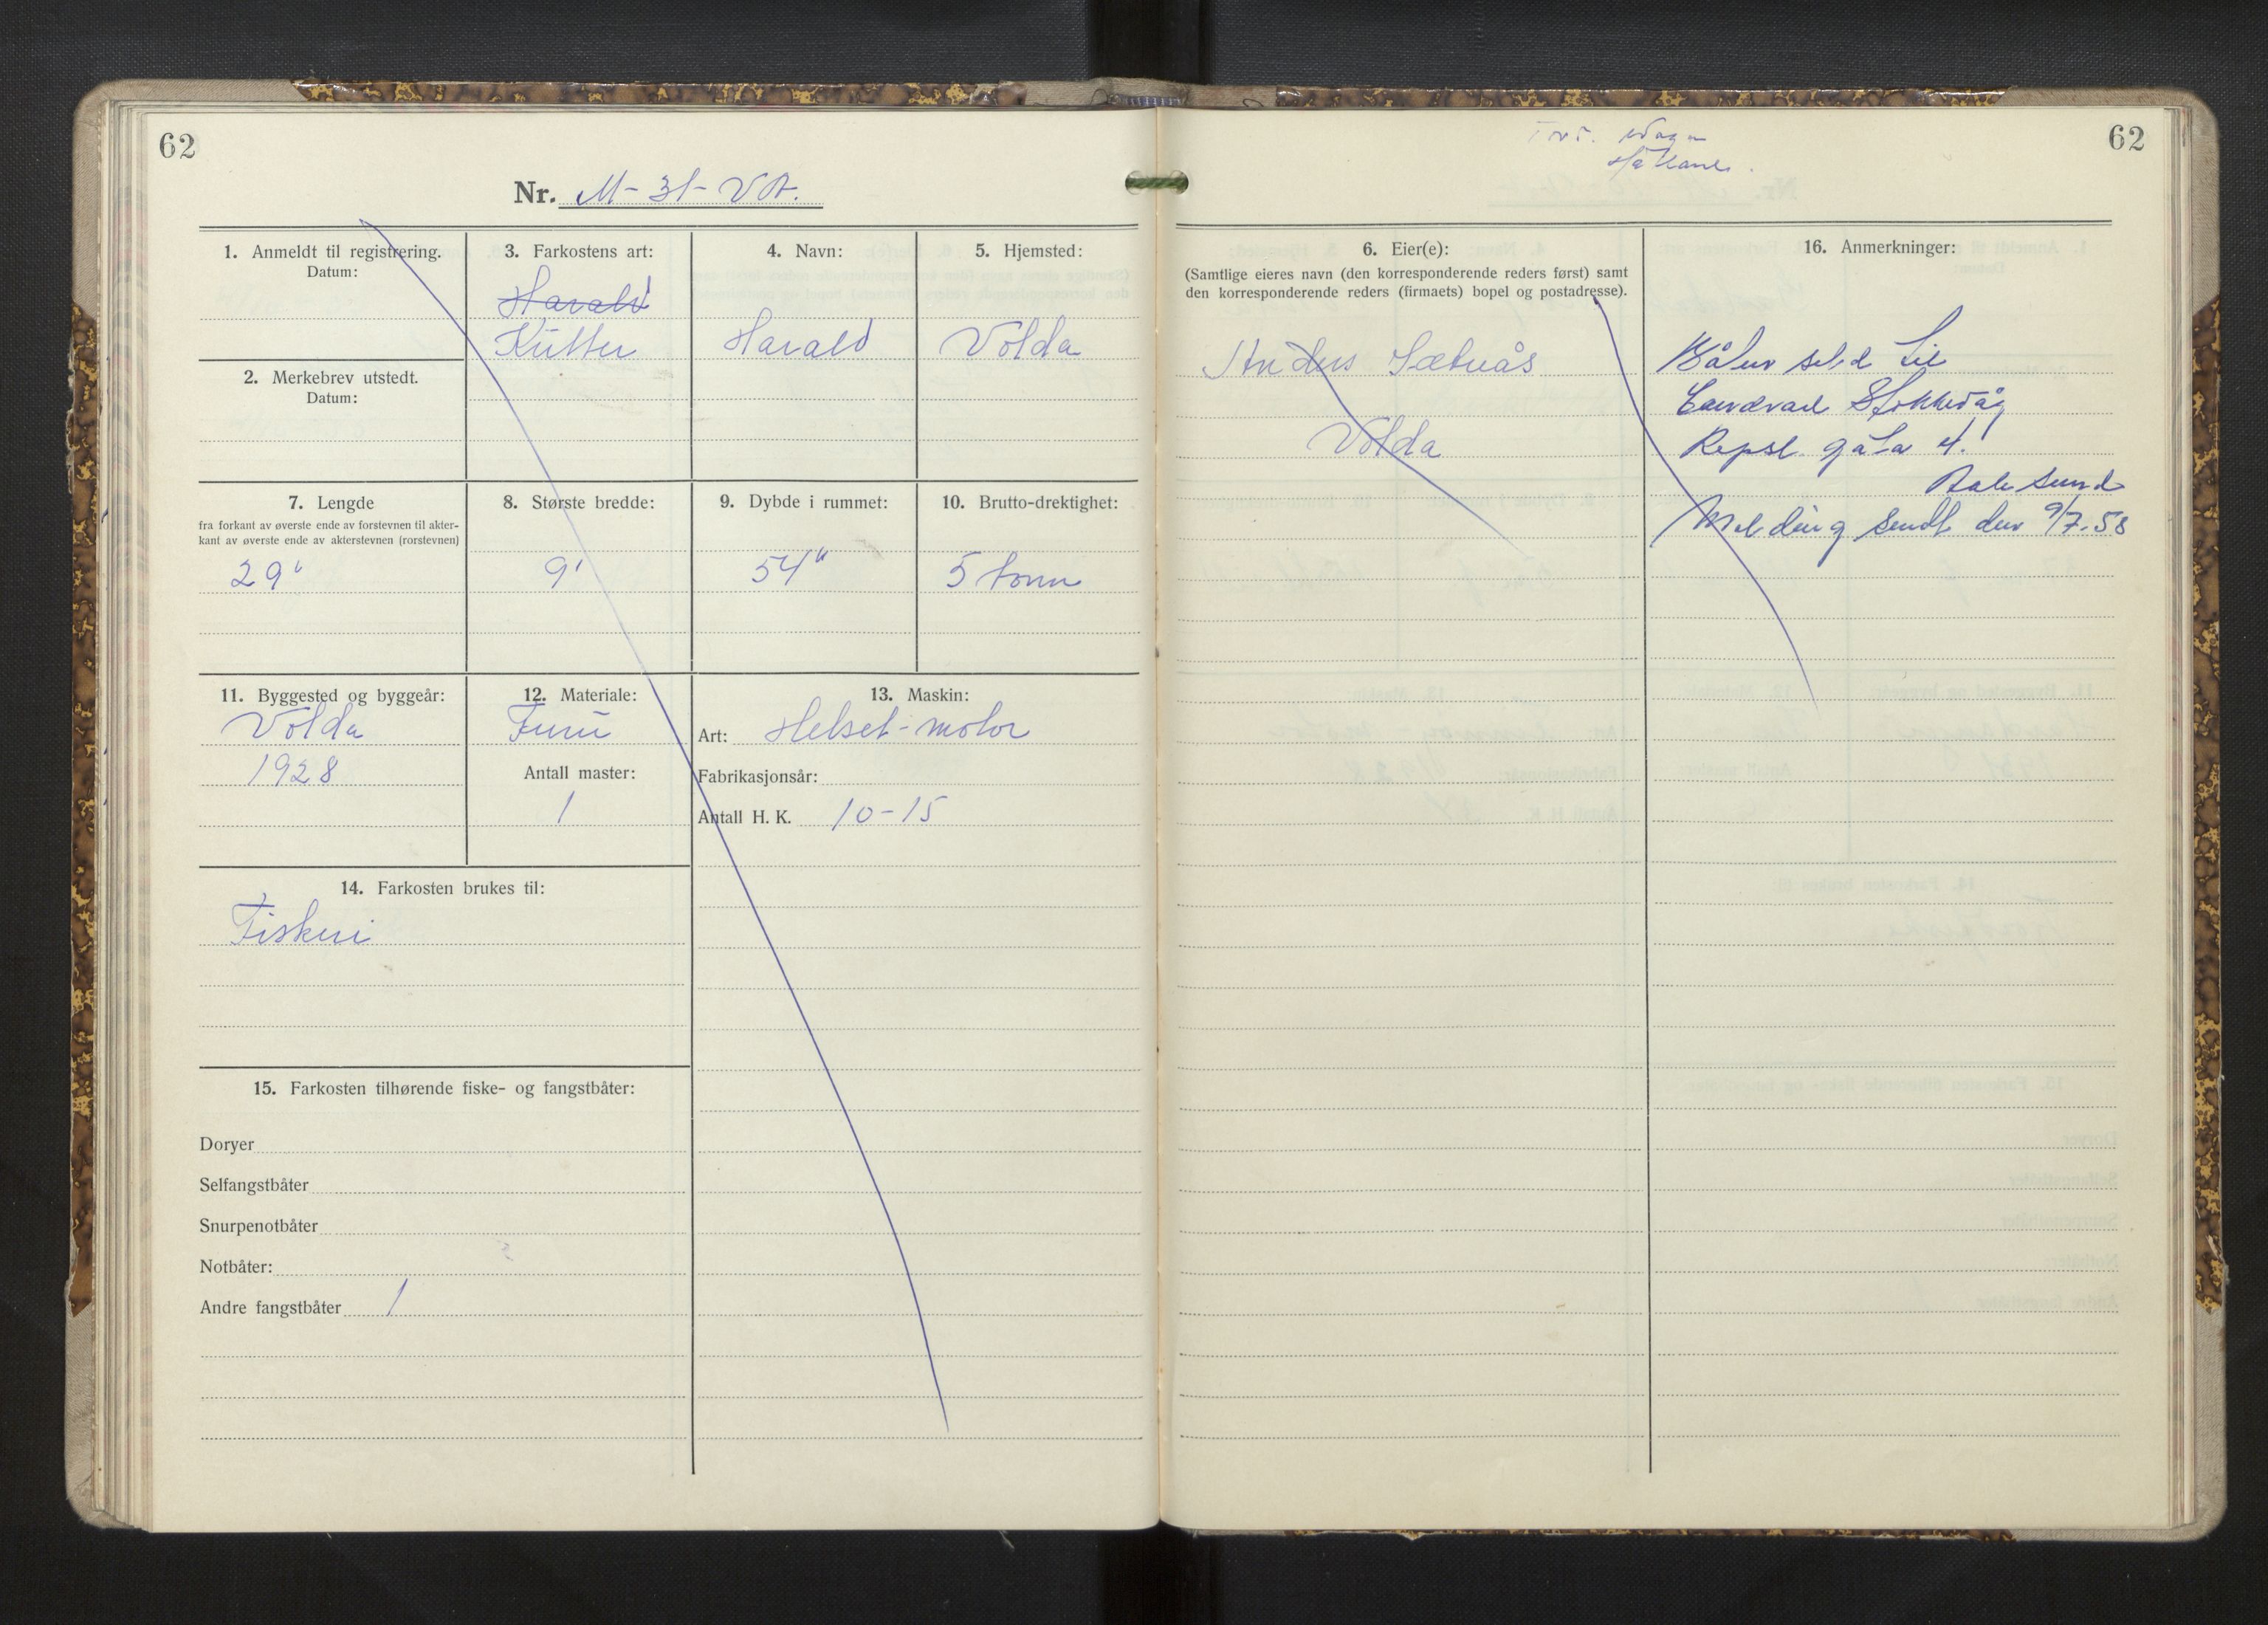 62
Nr. M-31-VA.
1. Anmeldt til registrering.
Datum:
2. Merkebrev utstedt.
Datum:
3. Farkostens art:
Harald
Kutter
4. Navn:
Harald
5. Hjemsted:
Volda
7. Lengde
fra forkant av øverste ende av forstevnen til akter-
kant av øverste ende av akterstevnen (rorstevnen)
29'
8. Største bredde:
9'
9. Dybde i rummet:
54"
10. Brutto-drektighet:
5 tonn
11. Byggested og byggeår:
Volda
1928
12. Materiale:
Furu
Antall master:
1
13. Maskin:
Art: Helset-motor
Fabrikasjonsår:
Antall H. K. 10-15
14. Farkosten brukes til:
Fiskeri
15. Farkosten tilhørende fiske- og fangstbåter:
Doryer
Selfangstbåter
Snurpenotbåter
Notbåter:
Andre fangstbåter 1
62
6. Eier(e):
(Samtlige eieres navn (den korresponderende reders først) samt
den korresponderende reders (firmaets) bopel og postadresse).
Anders Sætnås
Volda
16. Anmerkninger:
Båten seld til
Stokkevåg
Repsl. gata 4.
Aalesund
Melding sendt den 9/7-58